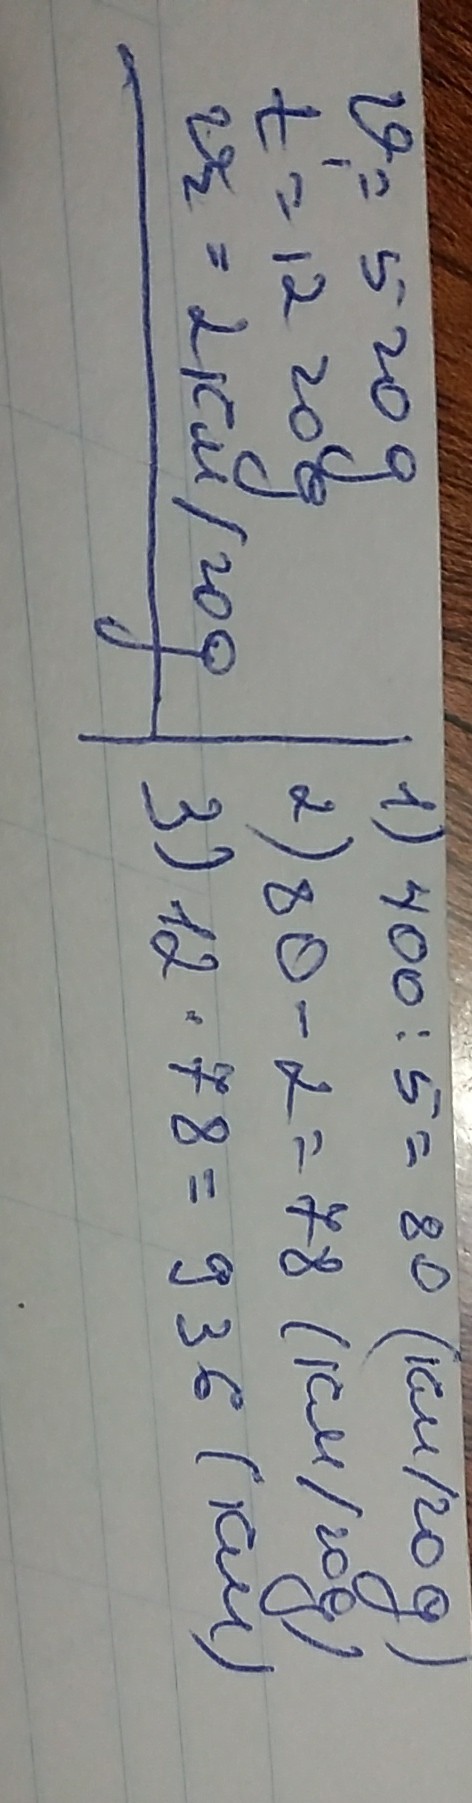 v₁ = 5 год
t = 12 год
v₂ = 2 км/год
1) 400 : 5 = 80 (км/год)
2) 80 - 2 = 78 (км/год)
3) 12 · 78 = 936 (км)